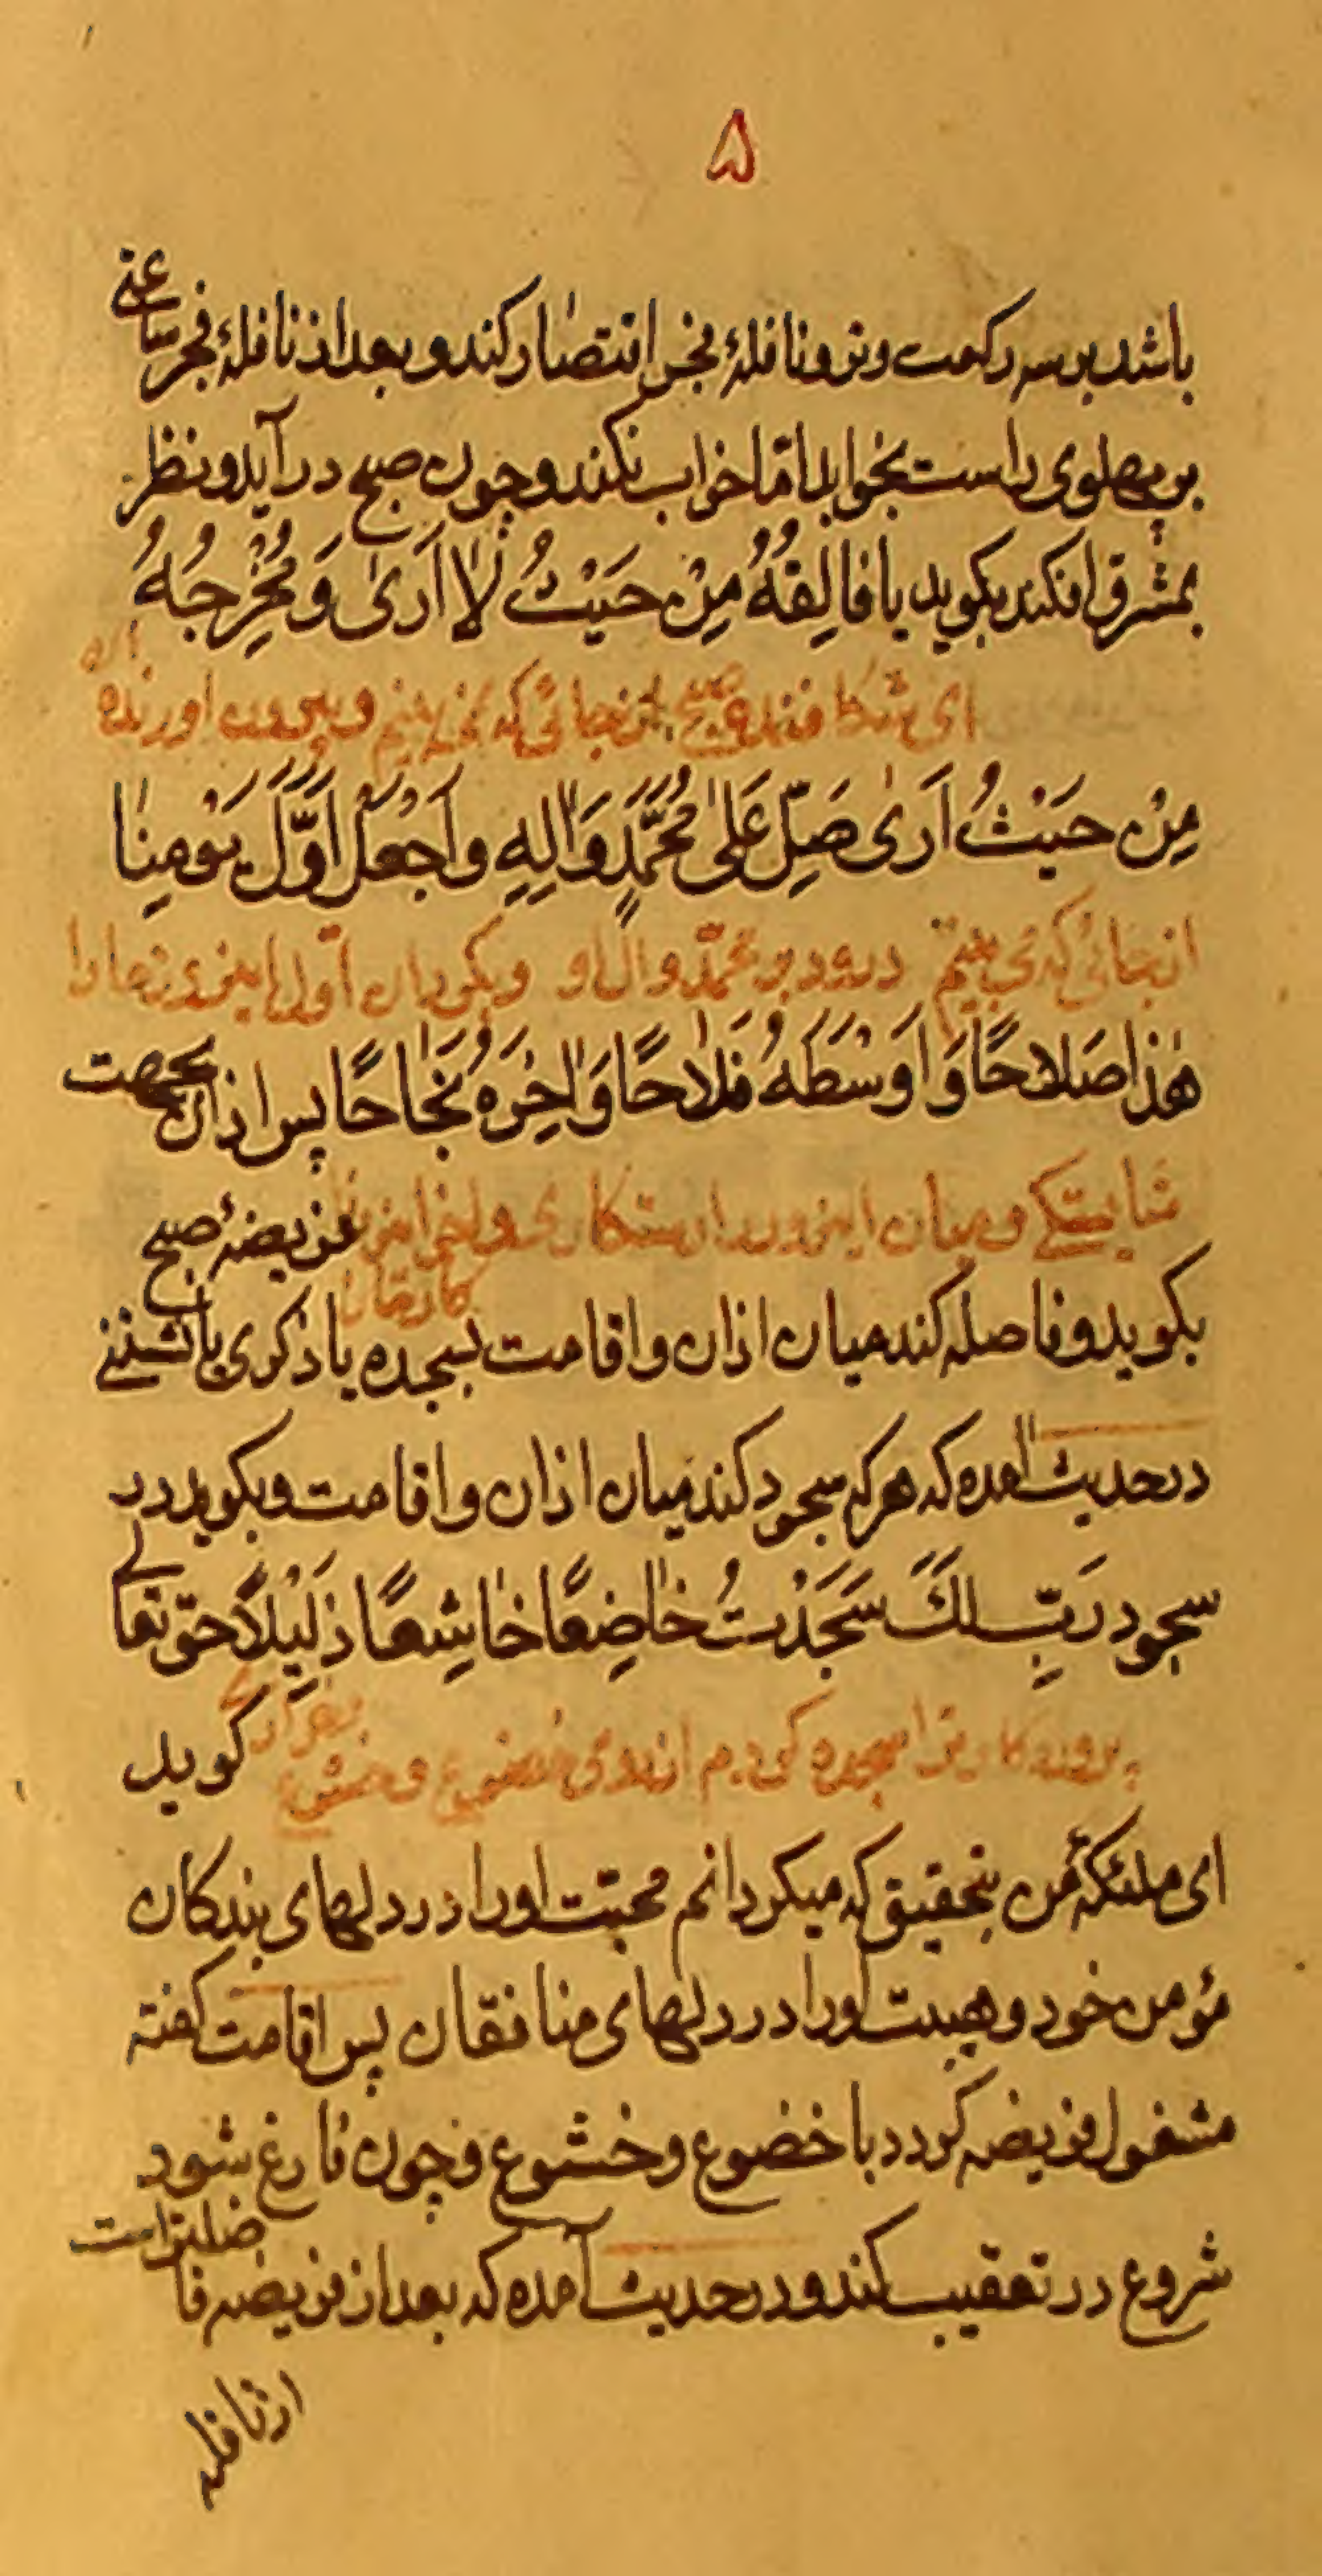 ۵
باشد بر سه رکعت وتر و نافلهٔ فجر اقتصار کند و بعد از نافلهٔ فجر ساعتی
بر پهلوی راست بخوابد امّا خواب نکند و چون صبح درآید و نظر
بمشرق افکند بکوید یا فٰالِقَهُ مِنْ حَیْثُ لٰا اَرَیٰ وَ مُخْرِجَهُ
ای شکافنده صبح از جائی که نمی بینم و بیرون اورنده
مِنْ حَیْثُ اَرَیٰ صَلِّ عَلیٰ مُحَمَّدٍ وَاٰلِهِ وَاجْعَلْ اَوَّلَ یَوْمِنٰا
از جائی که می بینم درود بر محمّد و ال او و بکردان اوّل این روز ما را
هٰذٰا صَلاٰحًا وَ اَوْسَطَهُ فَلاٰحًا وَ اٰخِرَهُ نَجٰاحًا پس اذان بجهت
شایستکی و میان این روز را رستکاری و اخر این
فریضهٔ صبح
بکوید و فاصله کند میان اذان و اقامت بسجده یا ذکری یا نشستنی
در حدیث آمده که هر که سجود کند میان اذان و اقامت و بکوید در
سجود رَبِّ لَکَ سَجَدْتُ خٰاضِعًا خٰاشِعًا ذَلِیْلًا حق تعالی
پروردکار ترا سجده کردم از روی خضوع و خشوع
کوید
ای ملئکهٔ من بتحقیق که میکردانم محبّت او را در دلهای بندکان
مؤمن خود و هیبت او را در دلهای منافقان پس اقامت کفته
مشغول فریضه کردد با خضوع و خشوع و چون فارغ بشود
شروع در تعقیب کند و در حدیث آمده که بعد از فریضه فاضلتر است
از نافله